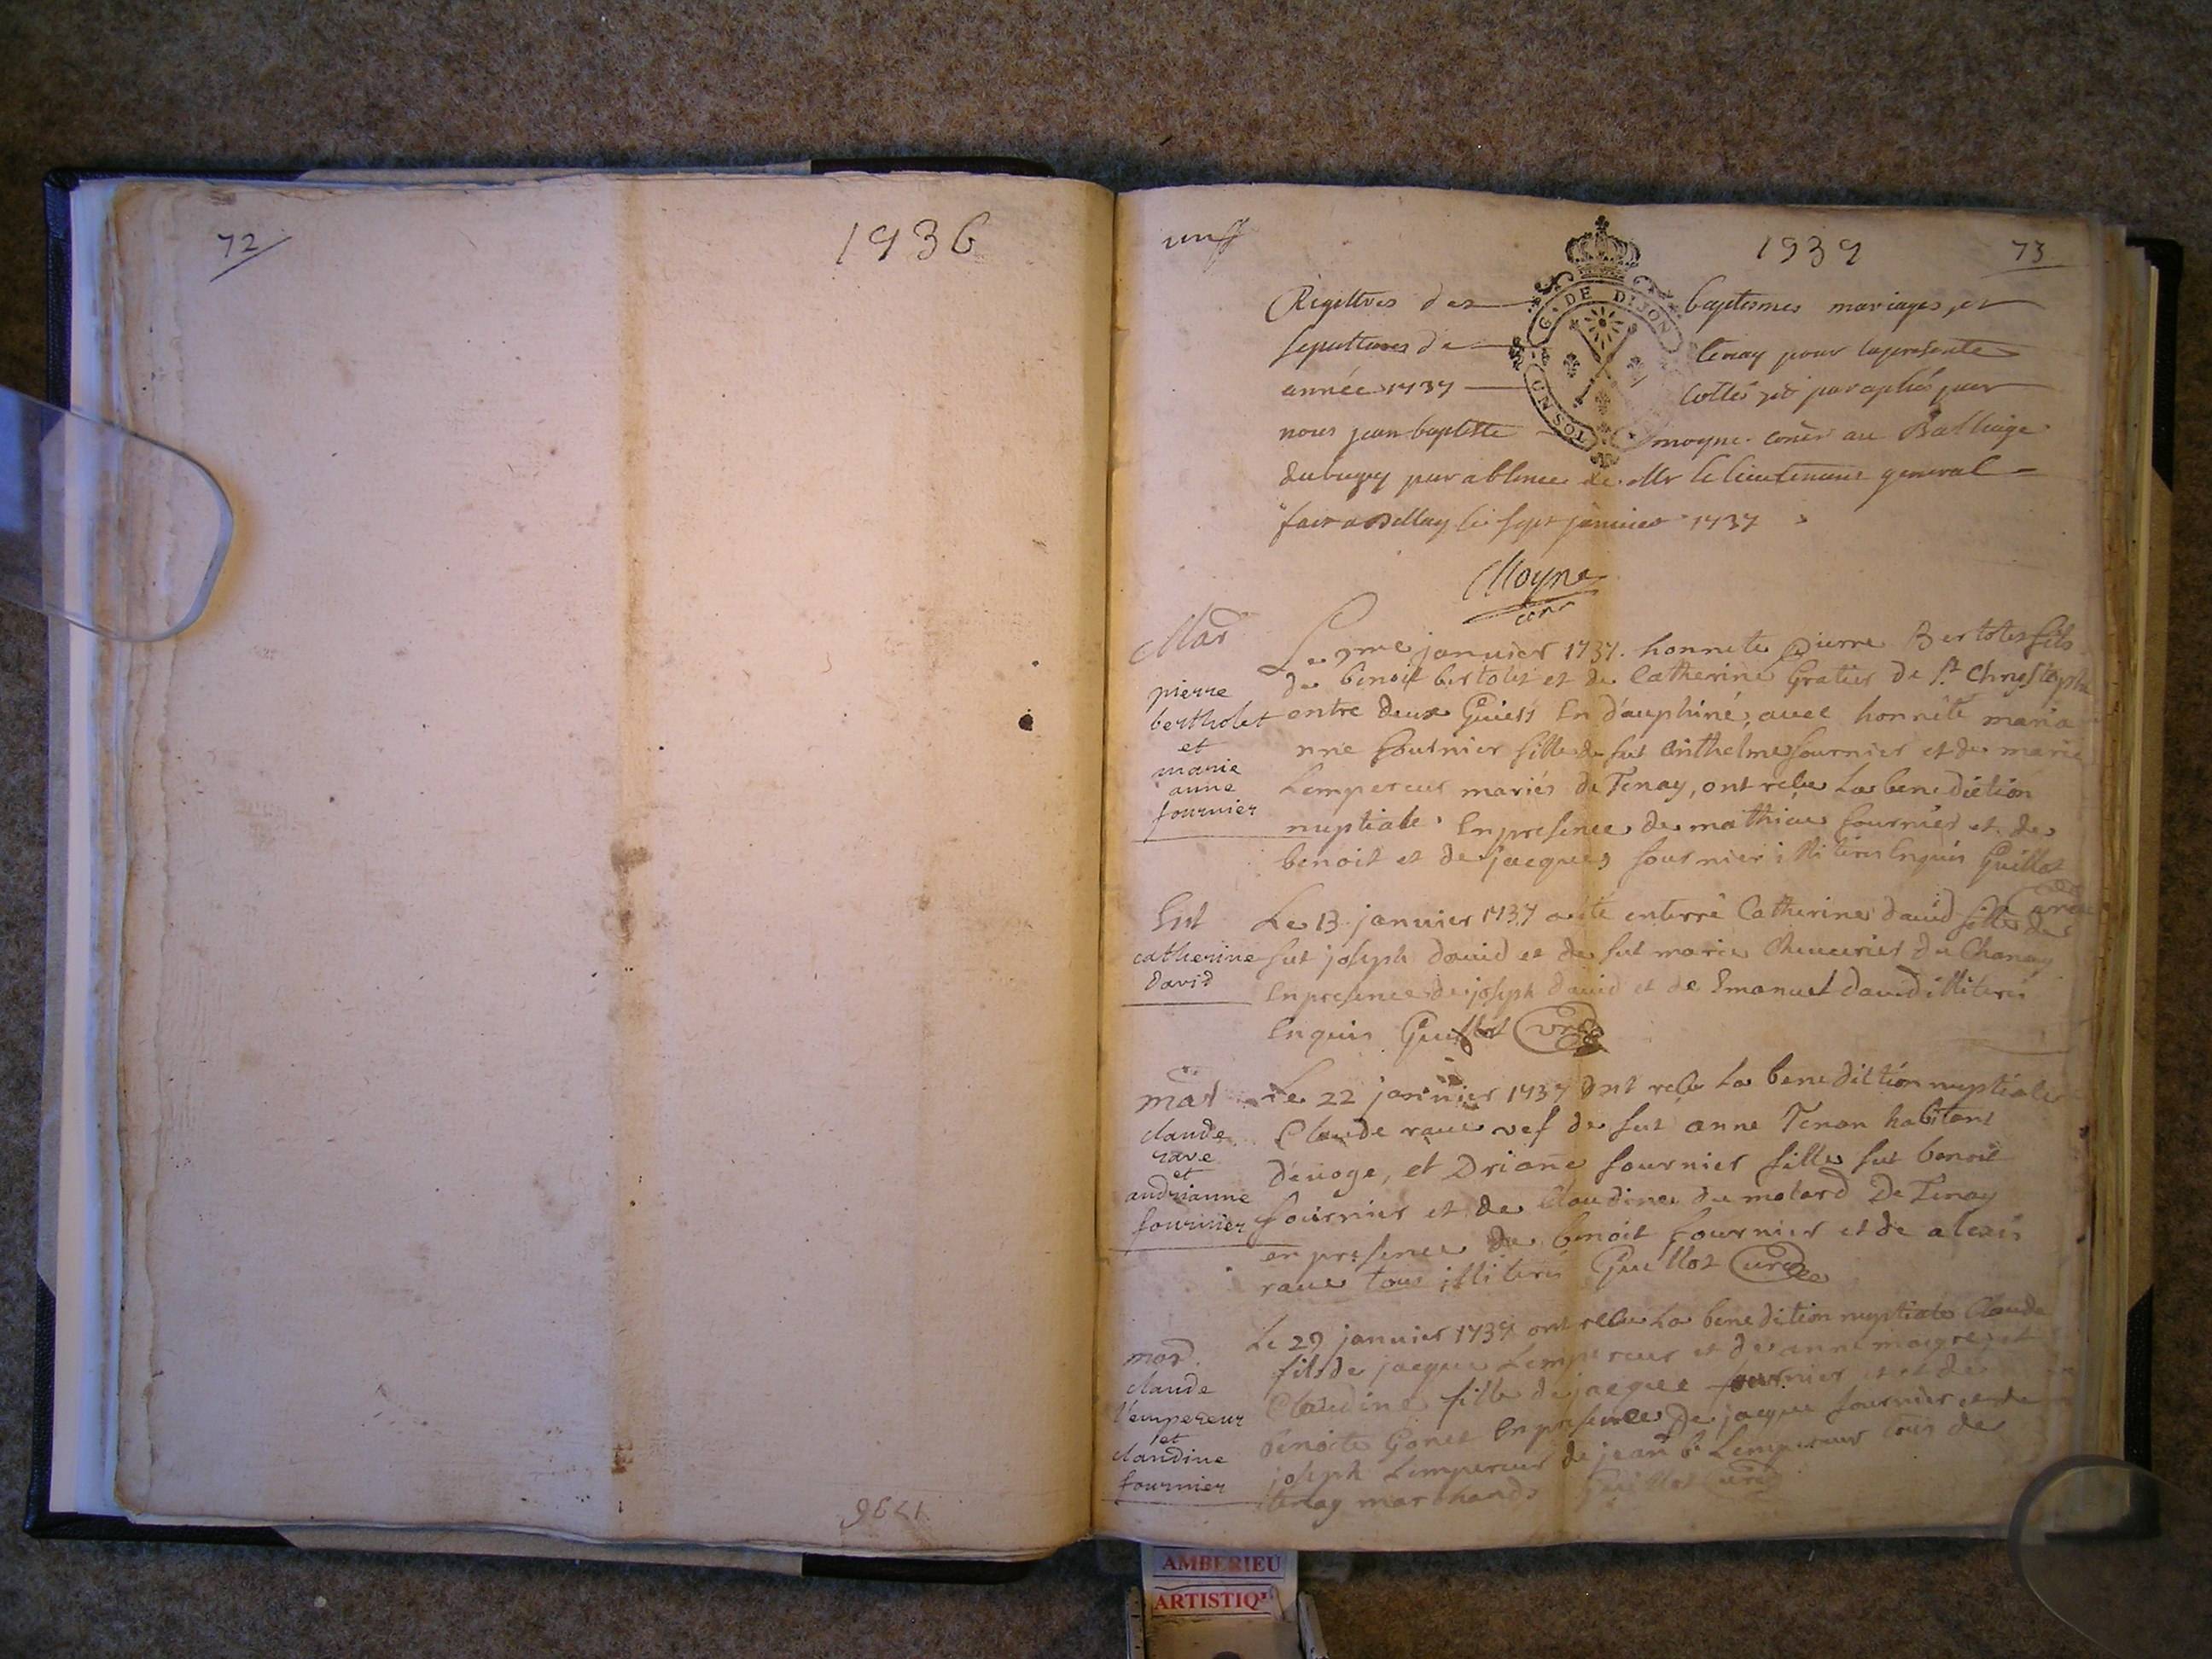 72
1736
1736
un
1737
73
G. DE DIJON
Registres des baptesmes mariages et
sepultures de tenay pour la presente
année 1737 cottés et paraphés par
nous jean baptiste moyne coner au Balliage
du bugey par absence de Mr le lieutenant general
fait a Bellay le sept janvier 1737
Moyne
coner
Mar
pierre
bertholet
et
marie
anne
fournier
Le 7me janvier 1737. honnete pierre Bertolet fils
de benoit bertolet et de Catherine Gratier de st Christophle
entre deux Guiers En d'auphiné, avec honnête maria
nne fournier fille de fut Anthelme fournier et de marie
Lempereur mariés de Tenay, ont reçu La benediction
nuptiale En presence de mathieu fournier et de
benoit et de jacques fournier illiterés Enquis Guillot
Curé
Ent
catherine
david
Le 13 janvier 1737 a eté enterré Catherine david fille de
fut joseph david et de fut marie du Chanay
En presence de joseph david et de Emanuel david illiterés
Enquis Guillot Curé
mar
claude
rave
et
andrianne
fournier
Le 22 janvier 1737 ont reçu La benediction nuptiale
Claude rave vef de fut anne Tenan habitant
d'évoge, et Driane fournier fille fut benoit
fournier et de Claudine du molard De Tenay
en presence de benoit fournier et de alexis
rave tous illiterés Guillot Curé
mar
claude
l'empereur
et
claudine
fournier
Le 29 janvier 1737 ont reçu La benedition nuptiale Claude
fils de jacque Lempereur et de anne maigre et
Claudine fille de jacque fournier et de
benoite Gonet En presence De jacque fournier et de
joseph Lempereur de jean b. Lempereur tous de
tenay marchands Guillot Curé
AMBERIEU
ARTISTIQ'